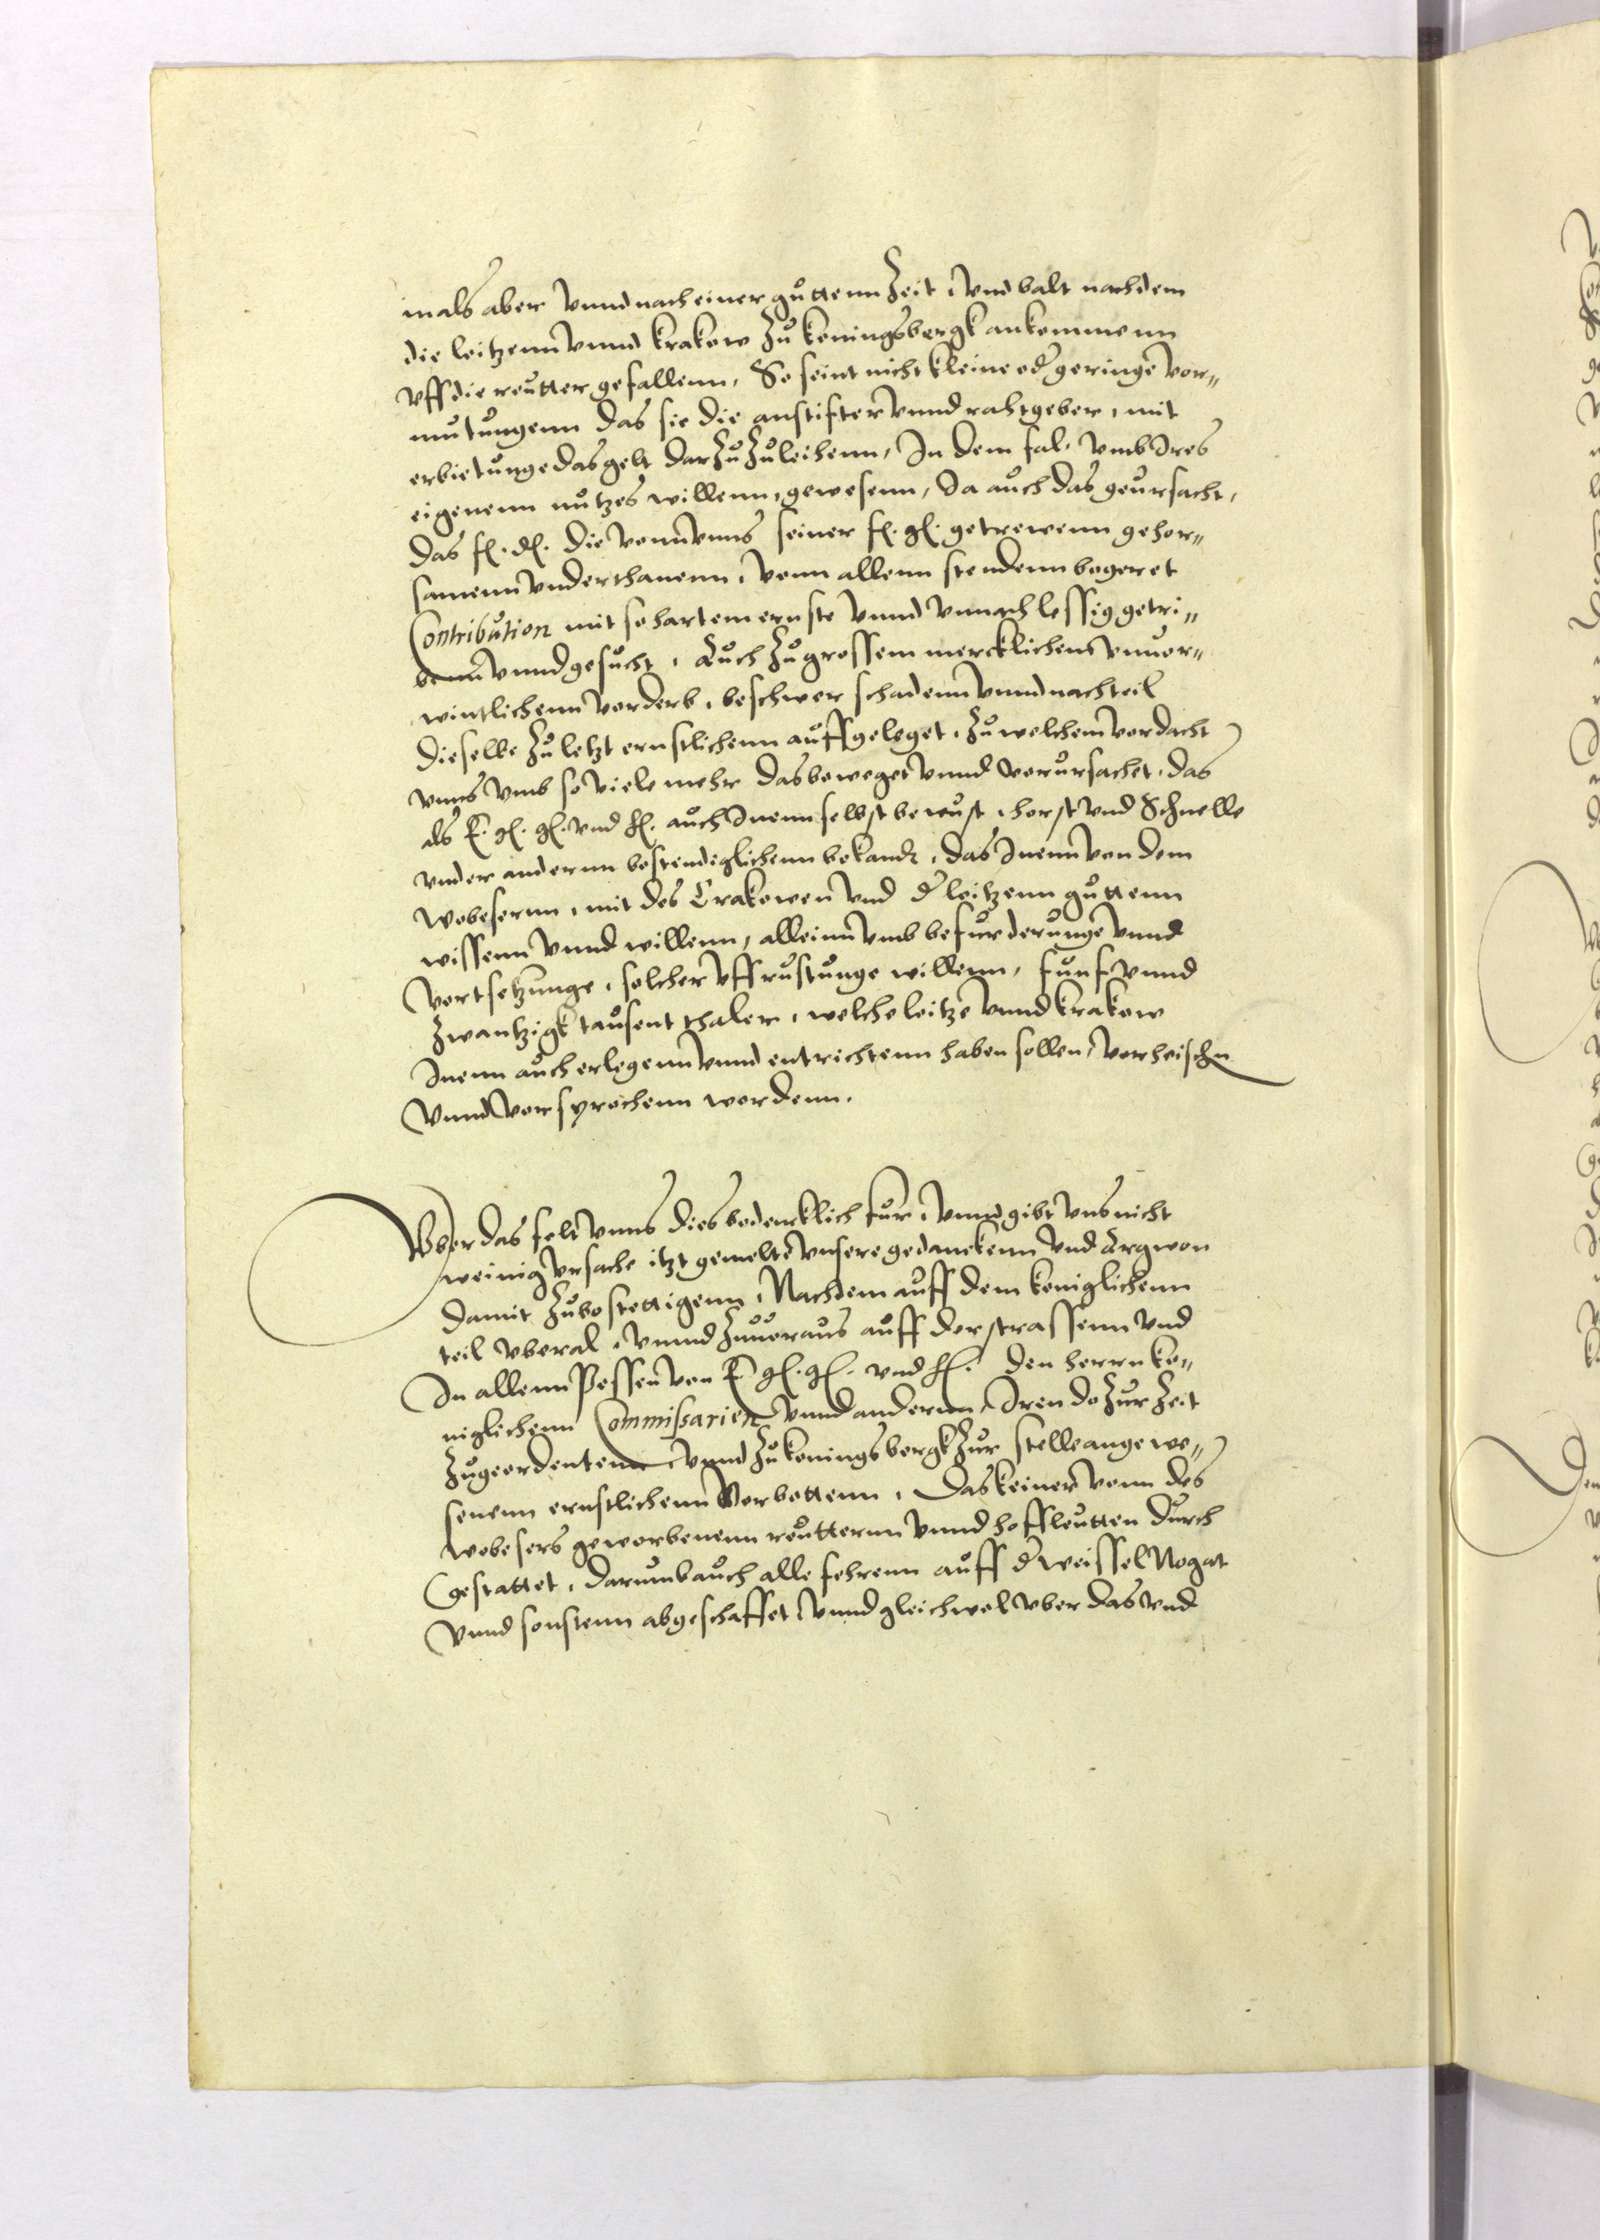 mals aber vnnd nach einer guttenn Zeit, vnd balt nach dem
die leitzenn vnnd krakow zu keningsbergk ankommenn
vff die reutter gefallenn, So seint nicht kleine od geringe vor„
mutungenn das sie die anstifter vnnd rahtgeber, mit
erbietunge das gelt darzu zuleihenn, In dem fal, vmb Ires
eigenenn nutzes willenn, gewesenn, Da auch das geursacht,
das f. d. die vonn vnns seiner f. g. getrewenn gehor„
samenn vnderthanenn, vonn allenn stendenn begeret
Contribution mit so hartem ernste vnnd vnnachlessig getri„
benn vnnd gesucht, Auch zu grossem mercklichem vnuor„
wintlichenn vorderb, beschwer schadenn vnnd nachteil
dieselbe zu letzt ernstlichenn auffgeleget, zu welchem vordacht
vnns vmb so viele mehr das beweget vnnd vorursachet, das
als E. g. g. vnd h. auch Inenn selbst bewust, horst vnd Schnelle
vnder andernn bestendiglichenn bekandt, das Inenn von dem
Webesernn, mit des Crakowen vnd d leitzenn guttenn
wissenn vnnd willenn, alleinn vmb befurderunge vnnd
vortsetzunge, solcher vffrustunge willenn, funf vnnd
zwantzigk tausent thaler, welche leitze vnnd krakow
Inenn auch erlegenn vnnd entrichtenn haben sollen, vorheischn
vnnd vorsprochenn wordenn.
Vber das felt vnns dies bedencklich fur, vnnd gibt vns nicht
weinig vrsache itzt gemelte vnsere gedanckenn vnd Argwon
damit zubestettigenn, Nachdem auff dem keniglichenn
teil vberal, vnnd zuuoraus auff der strassenn vnd
In allenn Pessen von E g. g. vnd h. den herrn ke„
niglichenn Commissarien vnnd anderun, Iren do zur Zeit
zugeordentenn, vnnd zu keningsbergk zur stelle angewe„
senenn ernstlichenn Vorbottenn, Das keiner vonn des
Webesers geworbenenn reutternn vnnd hoffleutten durch
gestattet, darumb auch alle fehrenn auff d weissel Nogat
vnnd sonstenn abgeschaffet, vnnd gleichwol vber das vnd